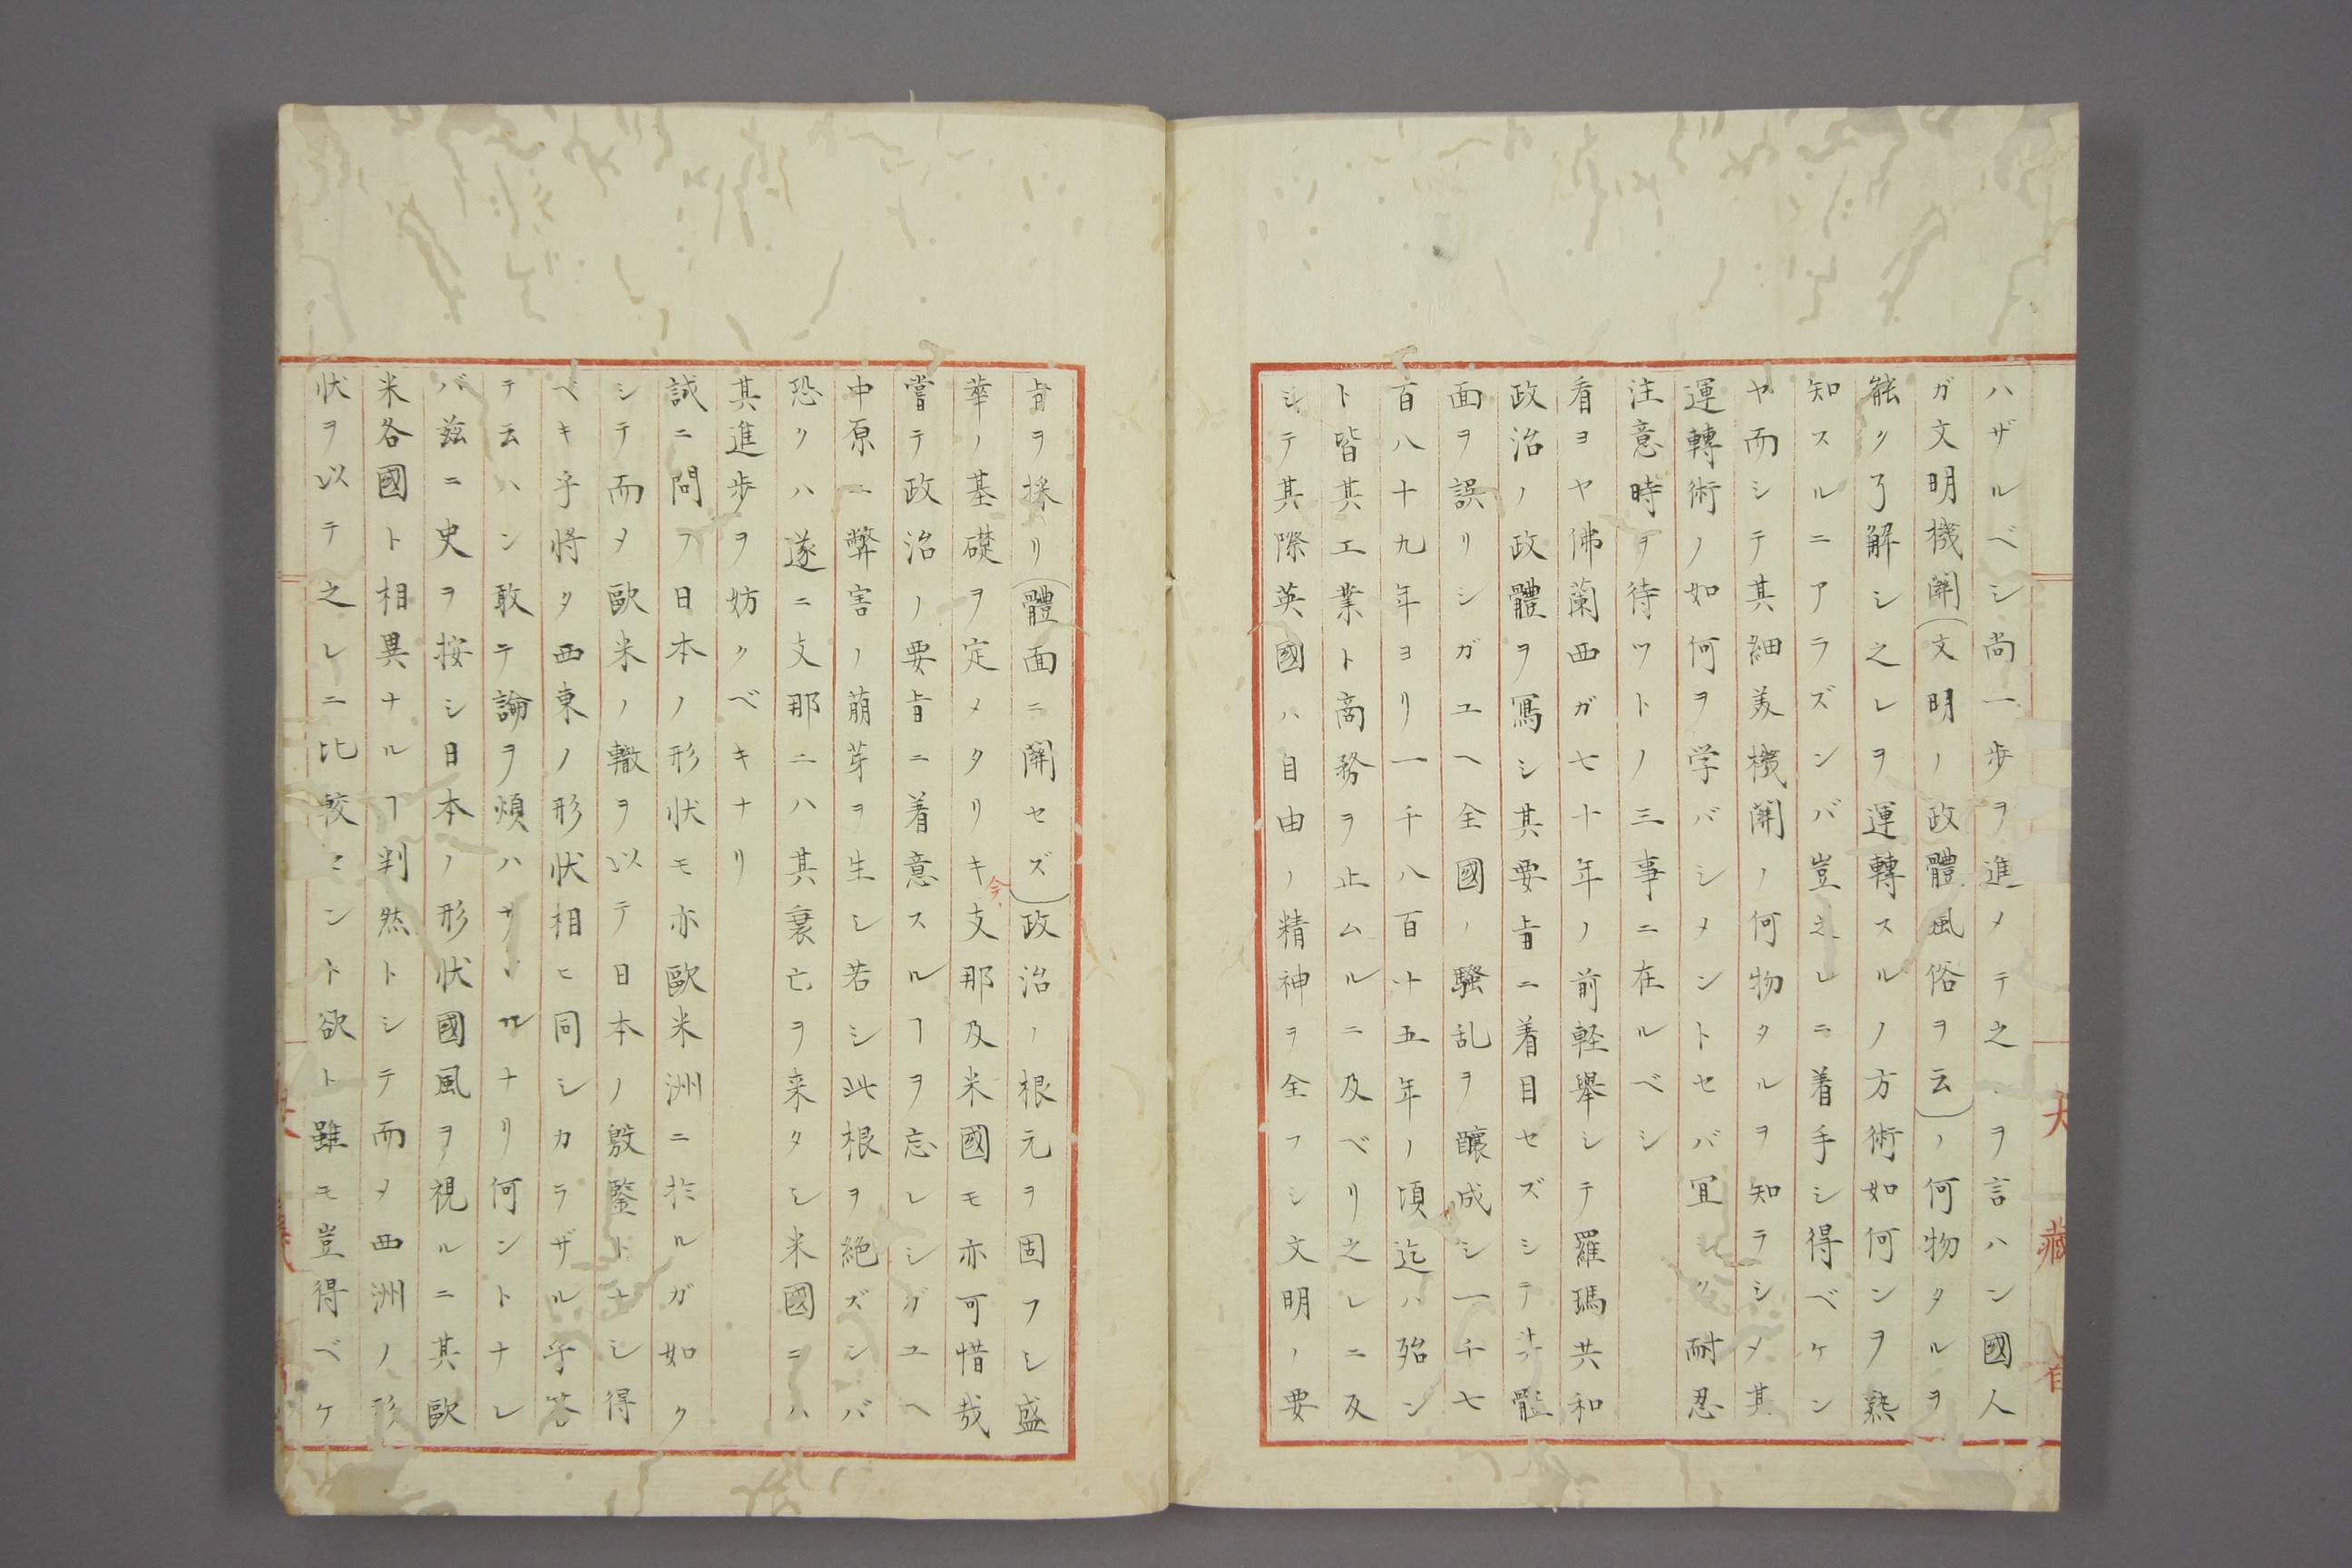 ハザルベシ尚一歩ヲ進メテ之ヲ言ハン國人
ガ文明機関(文明ノ政體風俗ヲ云)ノ何物タルヲ
能ク了解シ之レヲ運轉スルノ方術如何ンヲ熟
知スルニアラズンバ豈之レニ着手シ得ベケン
ヤ而シテ其細美機関ノ何物タルヲ知ラシメ其
運轉術ノ如何ヲ学バシメントセバ冝シク耐忍
注意時ヲ待ツトノ三事ニ在ルベシ
看ヨヤ佛蘭西ガ七十年ノ前軽舉シテ羅瑪共和
政治ノ政體ヲ寫シ其要旨ニ着目セズシテ體
面ヲ誤リシガユヘ全國ノ騒乱ヲ醸成シ一千七
百八十九年ヨリ一千八百十五年ノ頃迄ハ殆ン
ト皆其工業ト商務ヲ止ムルニ及ベリ之レニ反
シテ其際英國ハ自由ノ精神ヲ全フシ文明ノ要
旨ヲ採リ(體面ニ関セズ)政治ノ根元ヲ固フシ盛
華ノ基礎ヲ定メタリキ今支那及米國モ亦可惜哉
嘗テ政治ノ要旨ニ着意スルヿヲ忘レシガユヘ
中原ニ弊害ノ萠芽ヲ生シ若シ此根ヲ絶ズンバ
恐クハ遂ニ支那ニハ其衰亡ヲ来タシ米國ニハ
其進歩ヲ妨クベキナリ
誠ニ問フ日本ノ形状モ亦歐米洲ニ於ルガ如ク
シテ而メ歐米ノ轍ヲ以テ日本ノ殷鑒トナシ得
ベキ乎将タ西東ノ形状相ヒ同シカラザル乎答
テ云ハン敢テ論ヲ煩ハサヾルナリ何ントナレ
バ茲ニ史ヲ按シ日本ノ形状國風ヲ視ルニ其歐
米各國ト相異ナルヿ判然トシテ而メ西洲ノ形
状ヲ以テ之レニ比較セント欲ト雖モ豈得ベケ